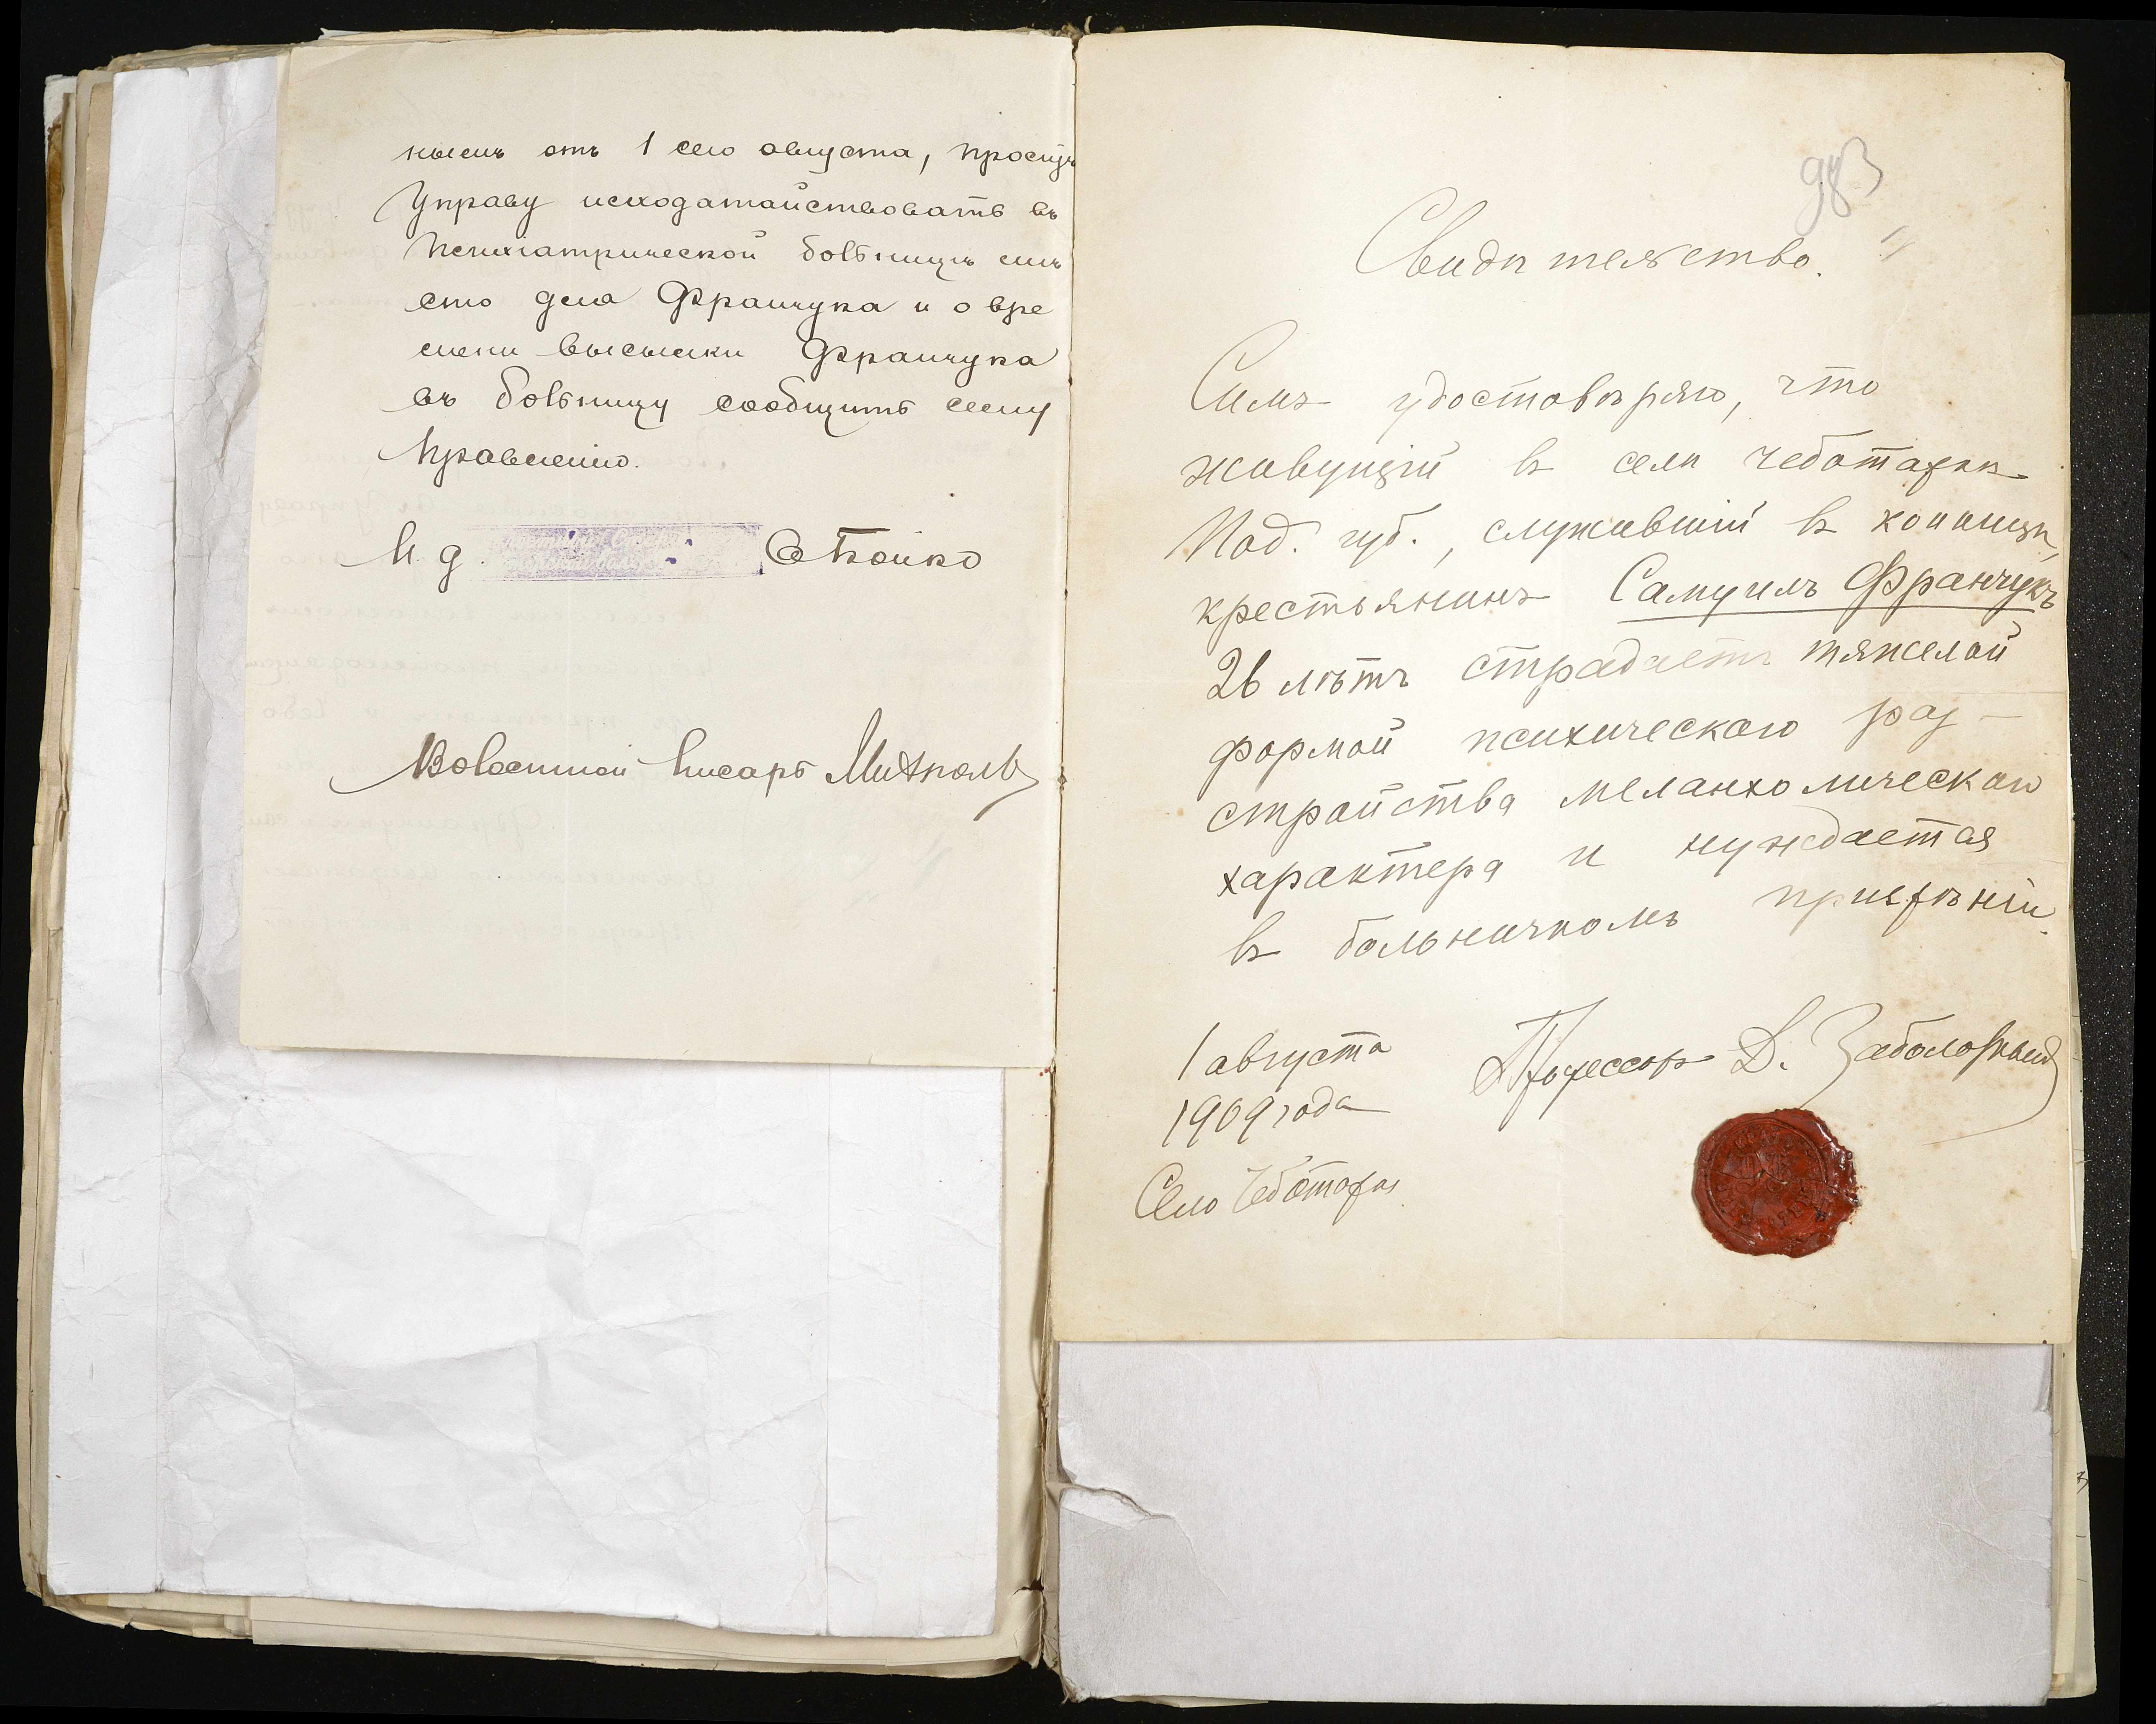 нымъ отъ 1 сего августа, проситъ
Управу исходатайствовать въ
Психіатрической больницѣ мѣ
сто для Франчука и о вре
мени высылки Франчука
въ больницу сообщить сему
Правленію.
И. д. С Бойко
Волостной Писарь
983
Свидѣтельство.
Симъ удостовѣряю, что
живущій въ селѣ Чеботаркѣ
Под. губ., служившій въ конницѣ,
крестьянинъ Самуилъ Франчукъ
26 лѣтъ страдаетъ тяжелой
формой психическаго раз-
стройства меланхолическаго
характера и нуждается
въ больничномъ призрѣніи.
1 августа
1909 года
Профессоръ Д. Заболотный
Село Чеботарка